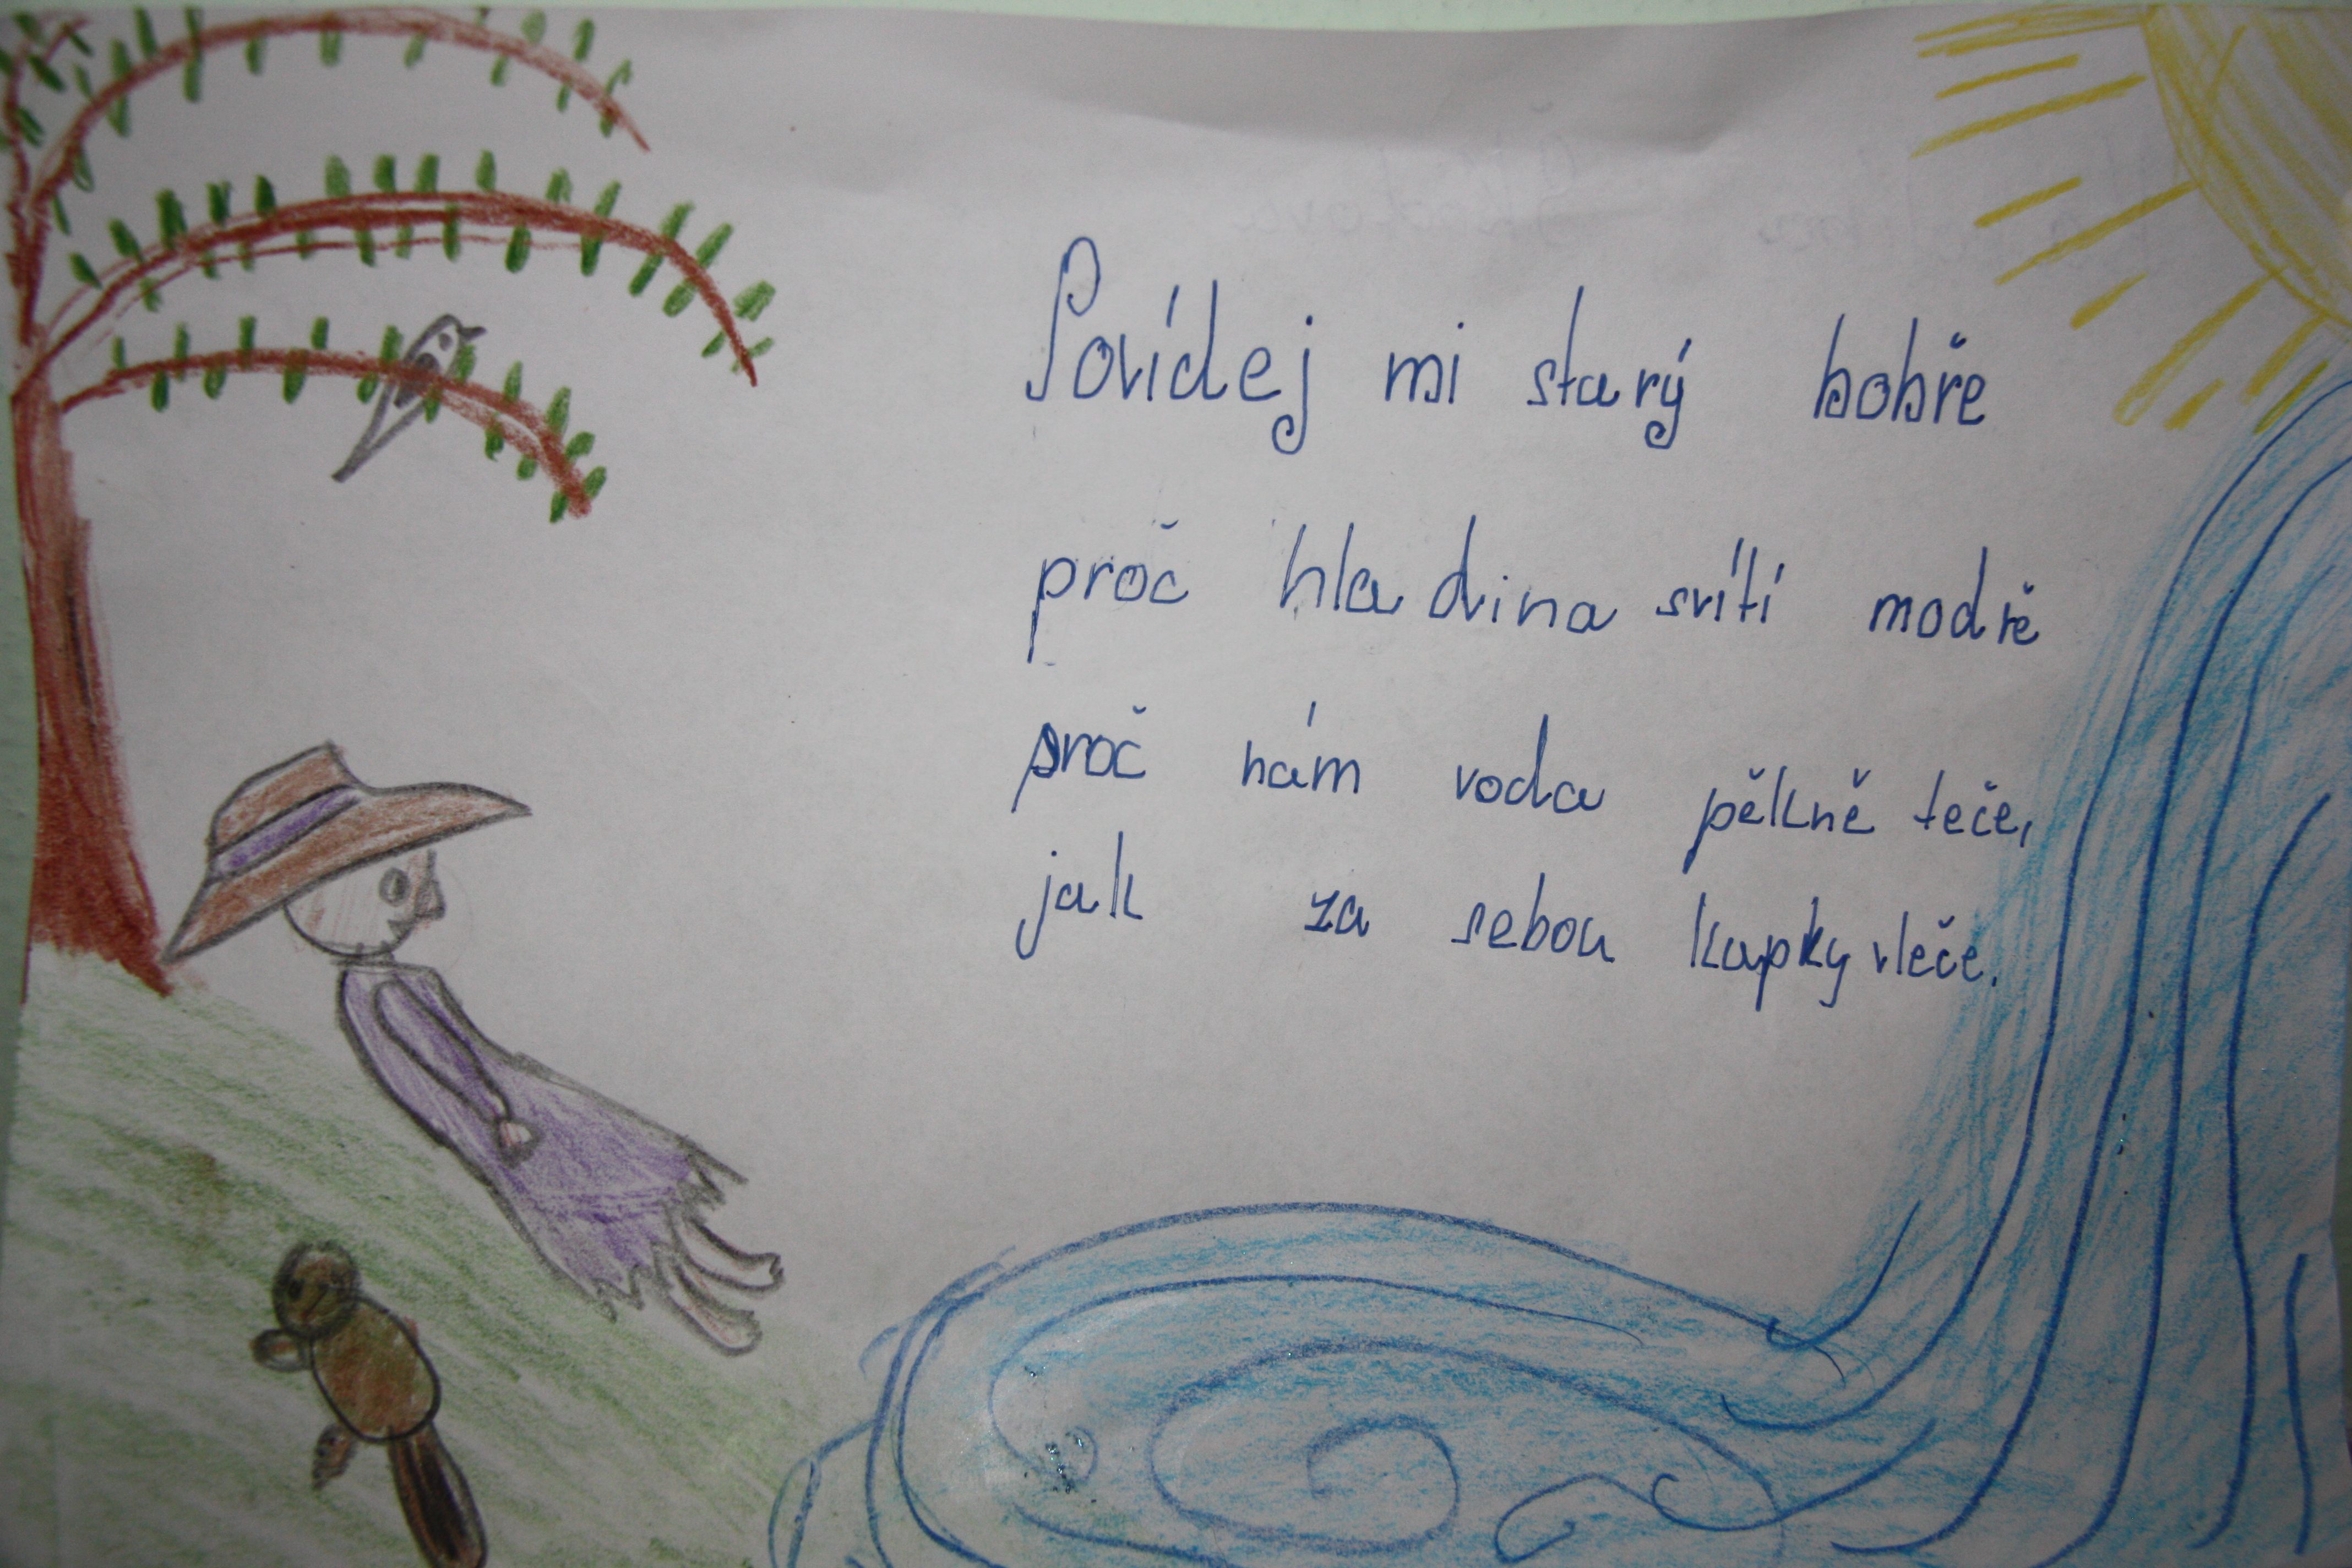 Povídej mi starý bobře
proč hladina svítí modře
proč nám voda pěkně teče,
jak za sebou kapky vleče.